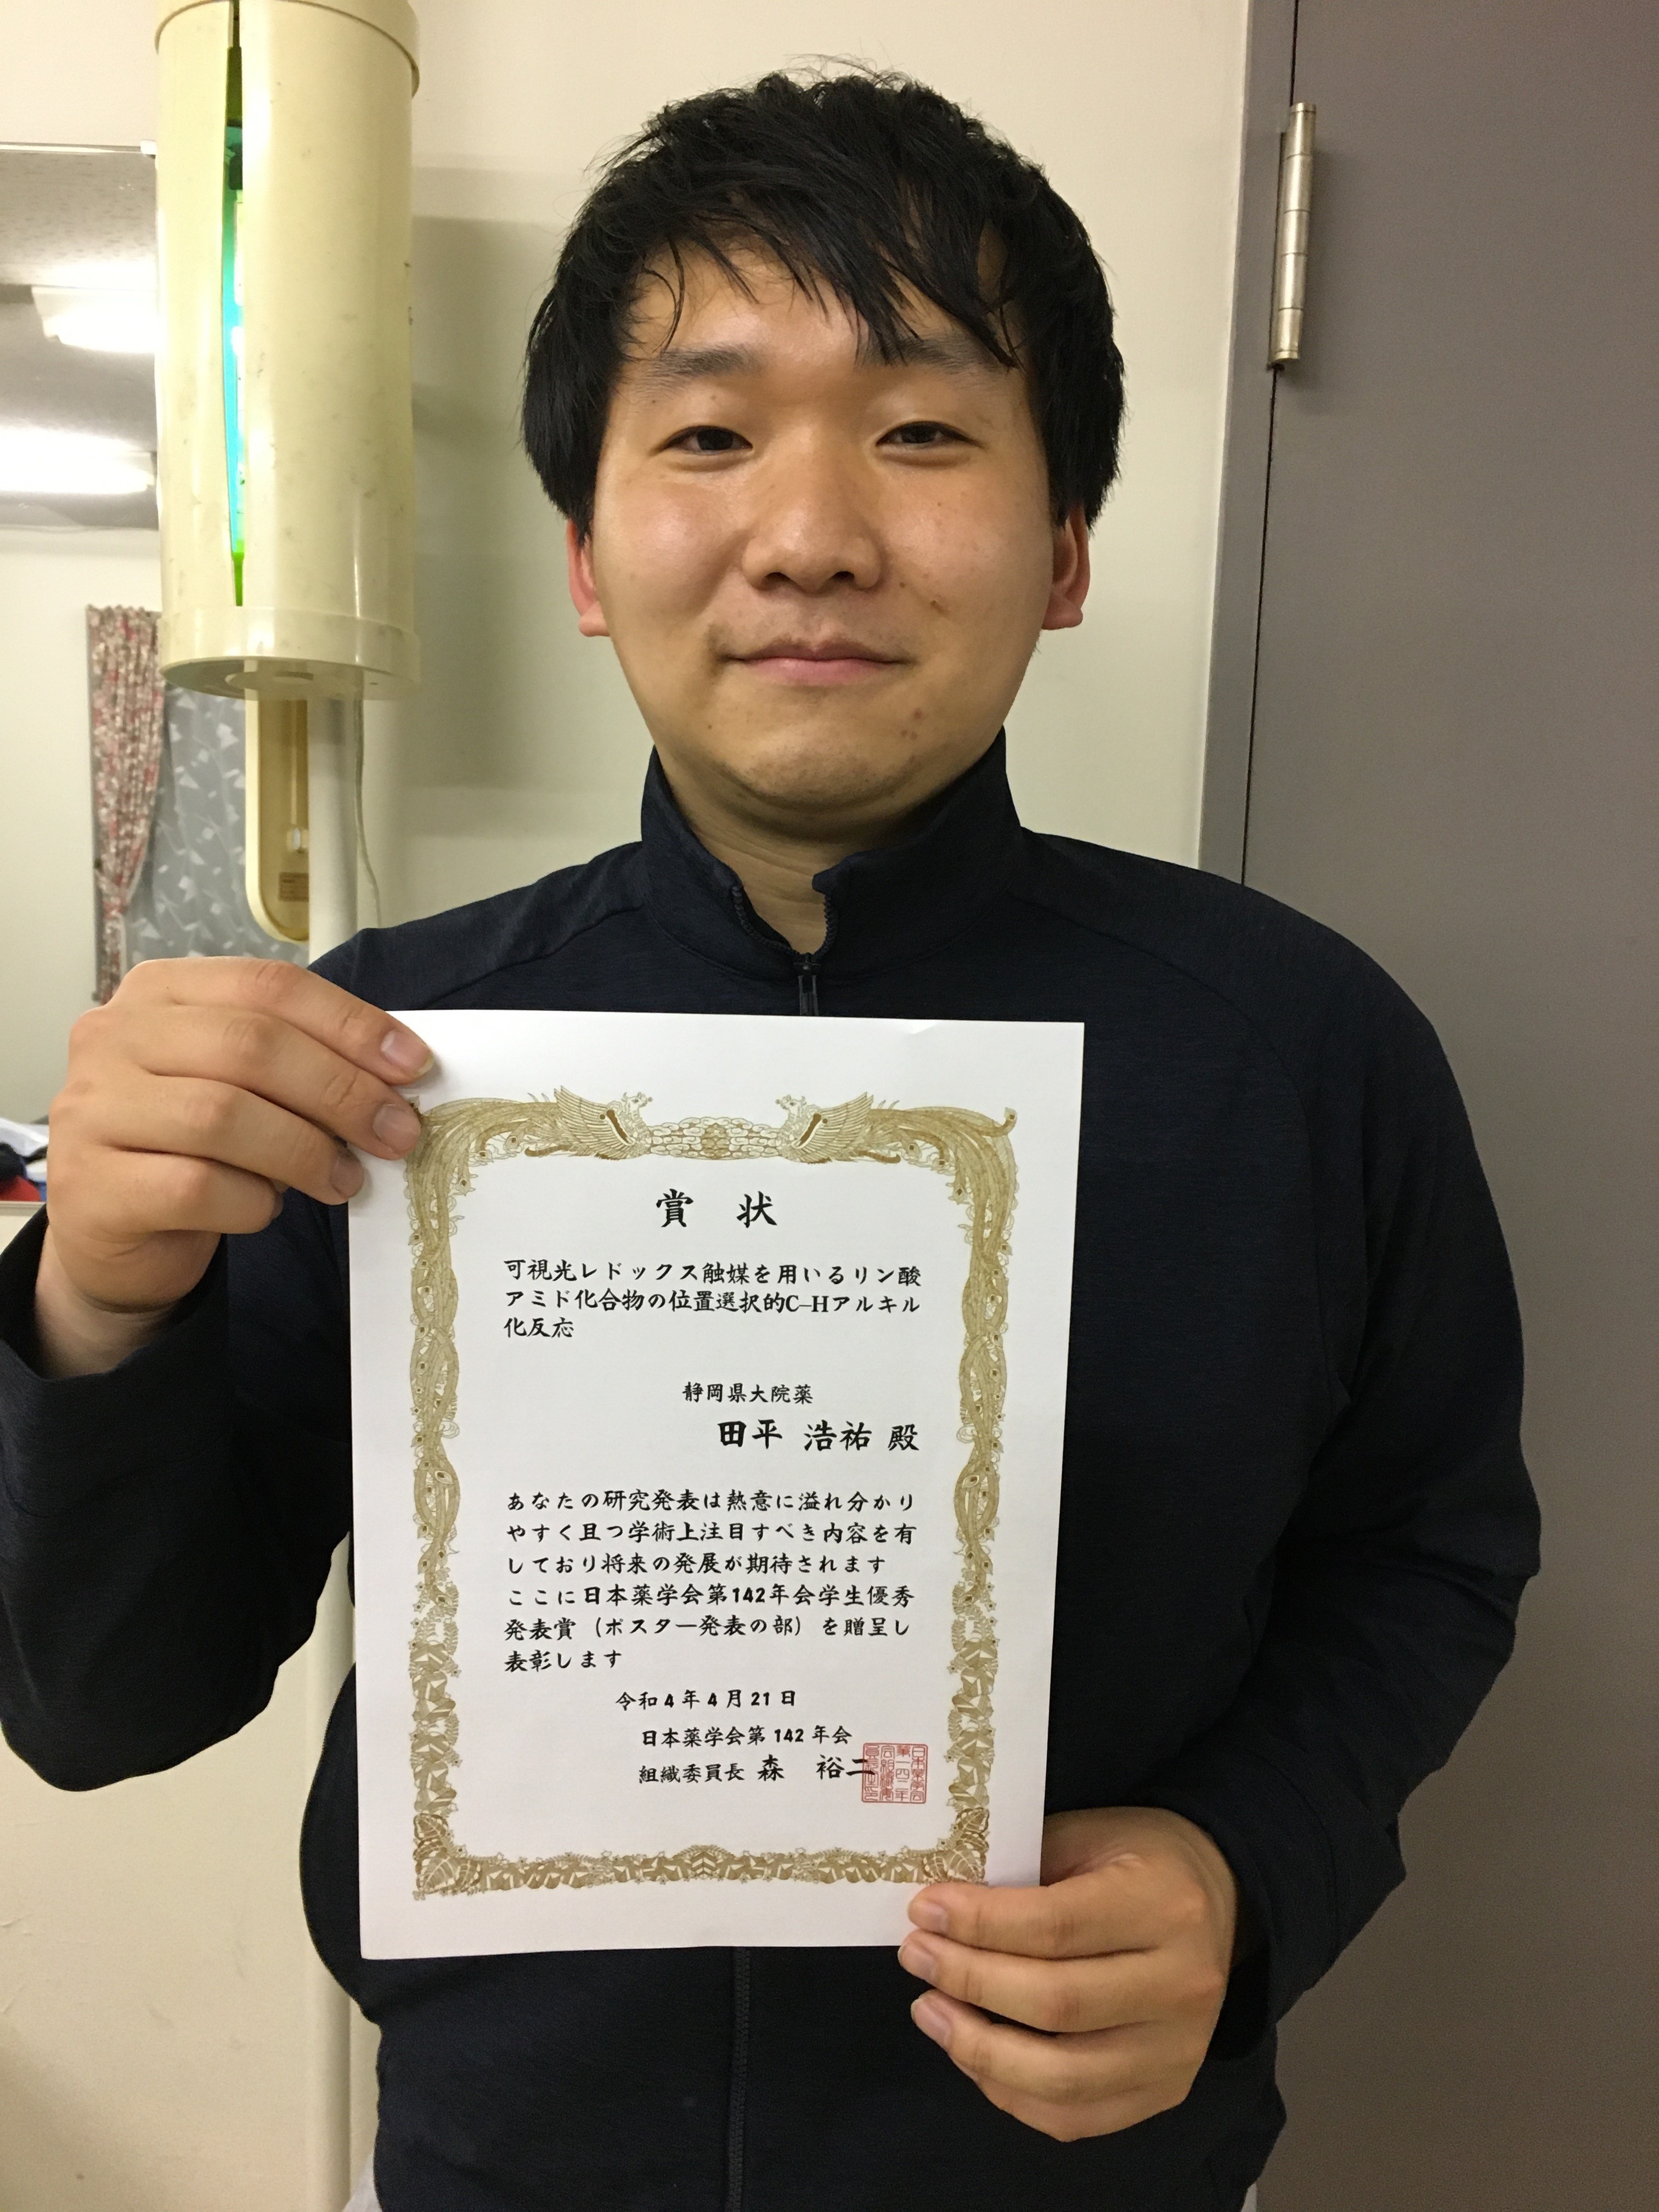 賞 状
可視光レドックス触媒を用いるリン酸
アミド化合物の位置選択的C–Hアルキル
化反応
静岡県大院薬
田平 浩祐 殿
あなたの研究発表は熱意に溢れ分かり
やすく且つ学術上注目すべき内容を有
しており将来の発展が期待されます
ここに日本薬学会第142年会学生優秀
発表賞（ポスター発表の部）を贈呈し
表彰します
令和4年4月21日
日本薬学会第142年会
組織委員長 森 裕二